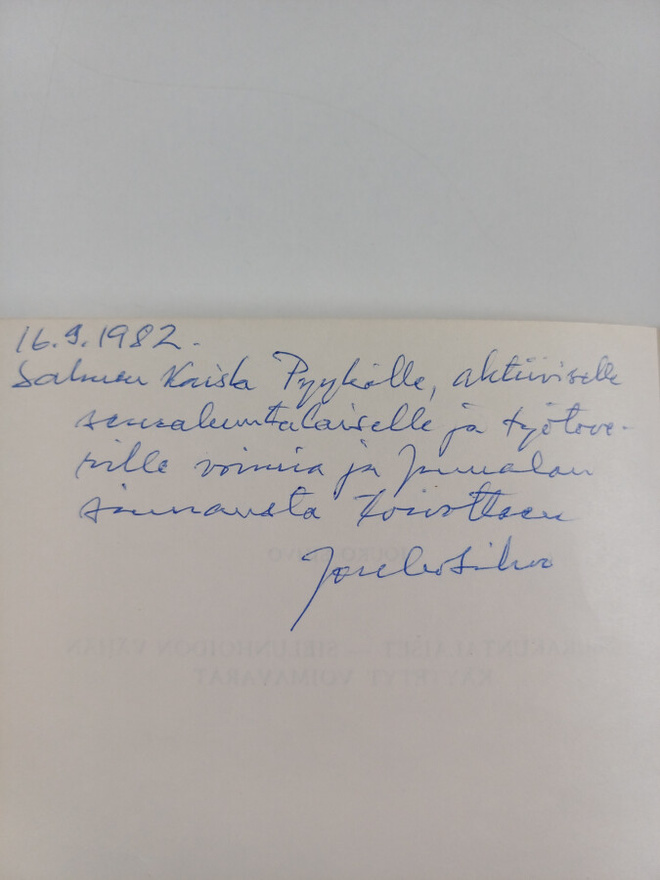 16.9.1982.
Kaisla Pyykölle, aktiiviselle
seurakuntalaiselle ja työtove-
rille voimia ja Jumalan
siunausta toivottaen
Jouko Sihvo
JOUKO SIHVO
SEURAKUNTALAISET — SIELUNHOIDON VÄHÄN
KÄYTETYT VOIMAVARAT